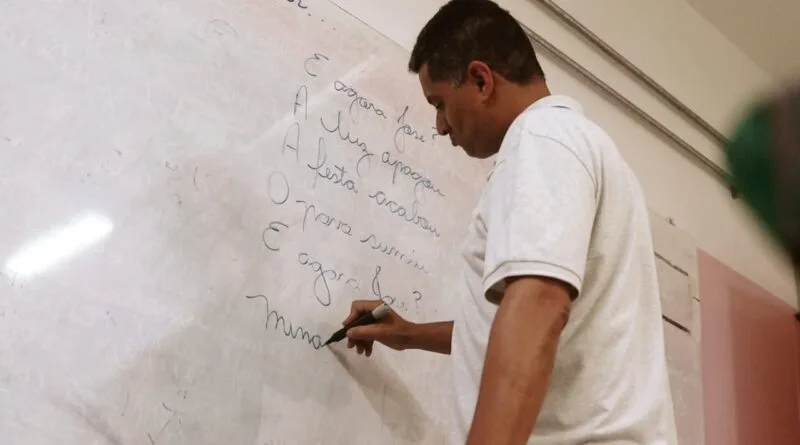 E agora José?
A luz apagou
A festa acabou
O povo sumiu
E agora José?
Mina